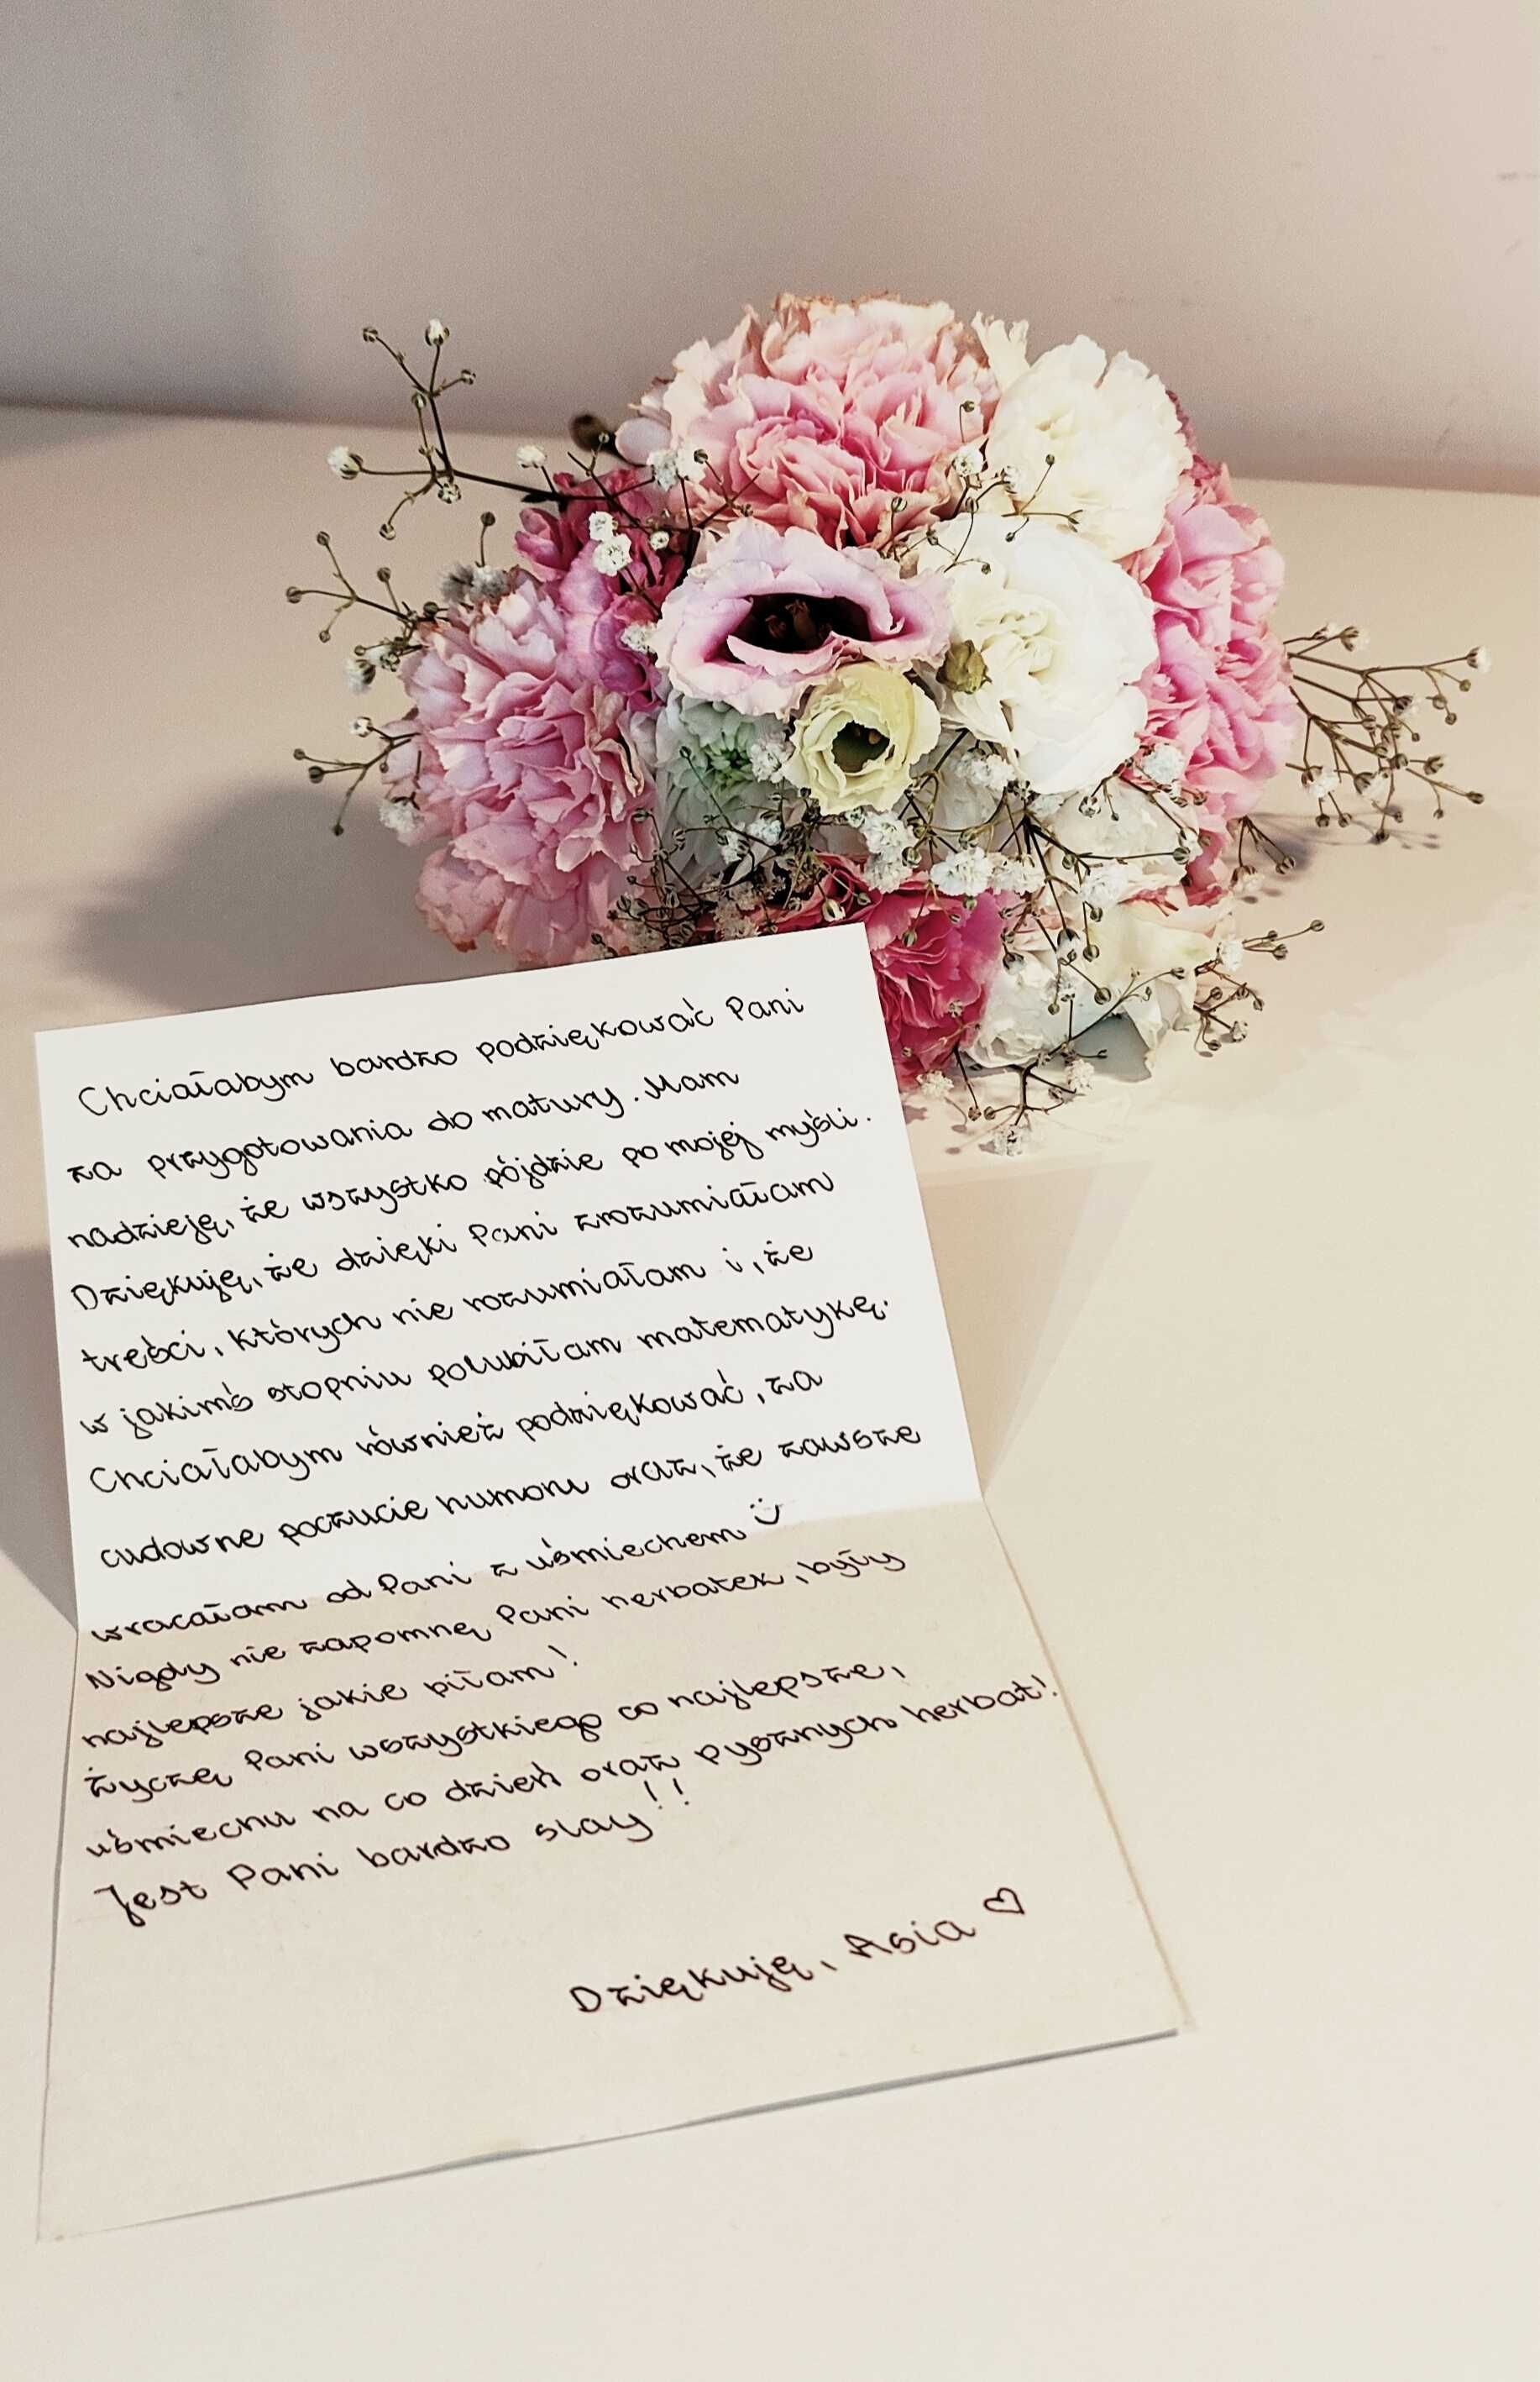 Chciałabym bardzo podziękować Pani
za przygotowania do matury. Mam
nadzieję, że wszystko pójdzie po mojej myśli.
Dziękuję, że dzięki Pani zrozumiałam
treści, których nie rozumiałam i, że
w jakimś stopniu polubiłam matematykę.
Chciałabym również podziękować, za
cudowne poczucie humoru oraz, że zawsze
wracałam od Pani z uśmiechem :)
Nigdy nie zapomnę Pani herbatek, były
najlepsze jakie piłam!
Życzę Pani wszystkiego co najlepsze,
uśmiechu na co dzień oraz pysznych herbat!
Jest Pani bardzo slay!!
Dziękuję, Asia ♡